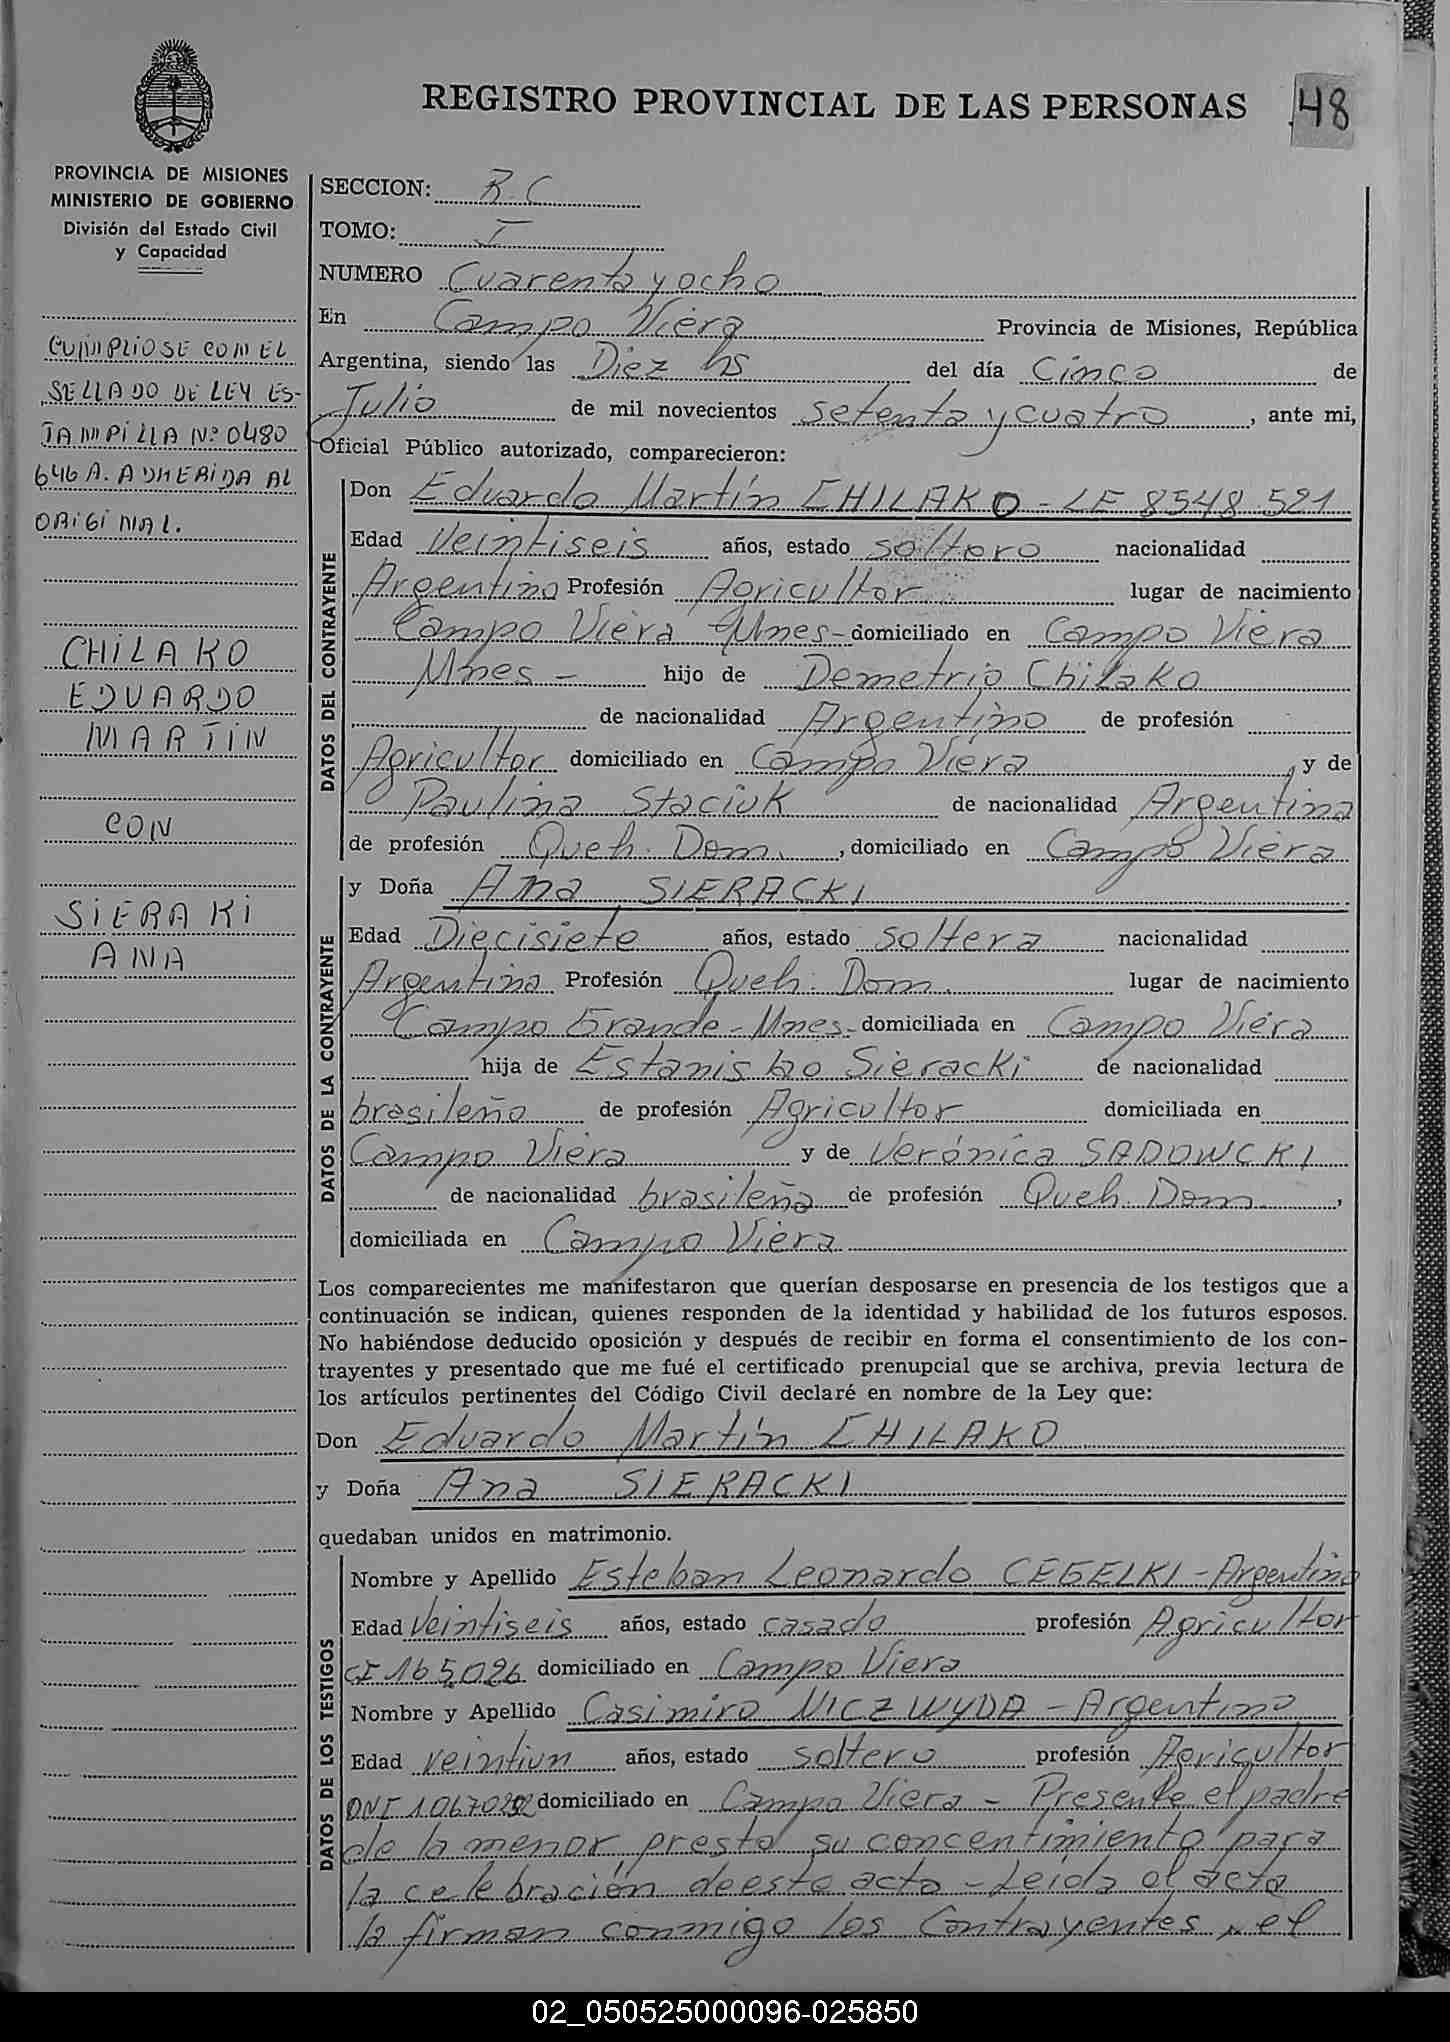 REGISTRO PROVINCIAL DE LAS PERSONAS
48
PROVINCIA DE MISIONES
MINISTERIO DE GOBIERNO
División del Estado Civil
y Capacidad
CUMPLIOSE CON EL
SELLADO DE LEY ES-
TAMPILLA Nº 0480
646 A. ADHERIDA AL
ORIGINAL.
CHILAKO
EDUARDO
MARTIN
CON
SIERAKI
ANA
SECCION: R.C
TOMO: I
NUMERO Cuarenta y ocho
En Campo Viera Provincia de Misiones, República
Argentina, siendo las Diez hs del día Cinco de
Julio de mil novecientos setenta y cuatro, ante mi,
Oficial Público autorizado, comparecieron:
DATOS DEL CONTRAYENTE
Don Eduardo Martín CHILAKO - LE 8548.521
Edad Veintiseis años, estado soltero nacionalidad
Argentino Profesión Agricultor lugar de nacimiento
Campo Viera Mnes- domiciliado en Campo Viera
Mnes - hijo de Demetrio Chilako
de nacionalidad Argentino de profesión
Agricultor domiciliado en Campo Viera, y de
Paulina Staciuk de nacionalidad Argentina
de profesión Queh. Dom., domiciliado en Campo Viera
DATOS DE LA CONTRAYENTE
y Doña Ana SIERACKI
Edad Diecisiete años, estado soltera nacionalidad
Argentina Profesión Queh. Dom. lugar de nacimiento
Campo Grande - Mnes- domiciliada en Campo Viera
hija de Estanislao Sieracki de nacionalidad
brasileño de profesión Agricultor domiciliada en
Campo Viera y de Verónica SADOWCKI
de nacionalidad brasileña de profesión Queh. Dom.,
domiciliada en Campo Viera
Los comparecientes me manifestaron que querían desposarse en presencia de los testigos que a
continuación se indican, quienes responden de la identidad y habilidad de los futuros esposos.
No habiéndose deducido oposición y después de recibir en forma el consentimiento de los con-
trayentes y presentado que me fué el certificado prenupcial que se archiva, previa lectura de
los artículos pertinentes del Código Civil declaré en nombre de la Ley que:
Don Eduardo Martín CHILAKO
y Doña Ana SIERACKI
quedaban unidos en matrimonio.
DATOS DE LOS TESTIGOS
Nombre y Apellido Esteban Leonardo CEGELKI - Argentino
Edad Veintiseis años, estado casado profesión Agricultor
CI 165.026 domiciliado en Campo Viera
Nombre y Apellido Casimiro NICZWYDA - Argentino
Edad veintiun años, estado soltero profesión Agricultor
DNI domiciliado en Campo Viera - Presente el padre
de la menor presta su concentimiento para
la celebración de este acto - Leida el acta
la firman conmigo los Contrayentes, el
02_050525000096-025850